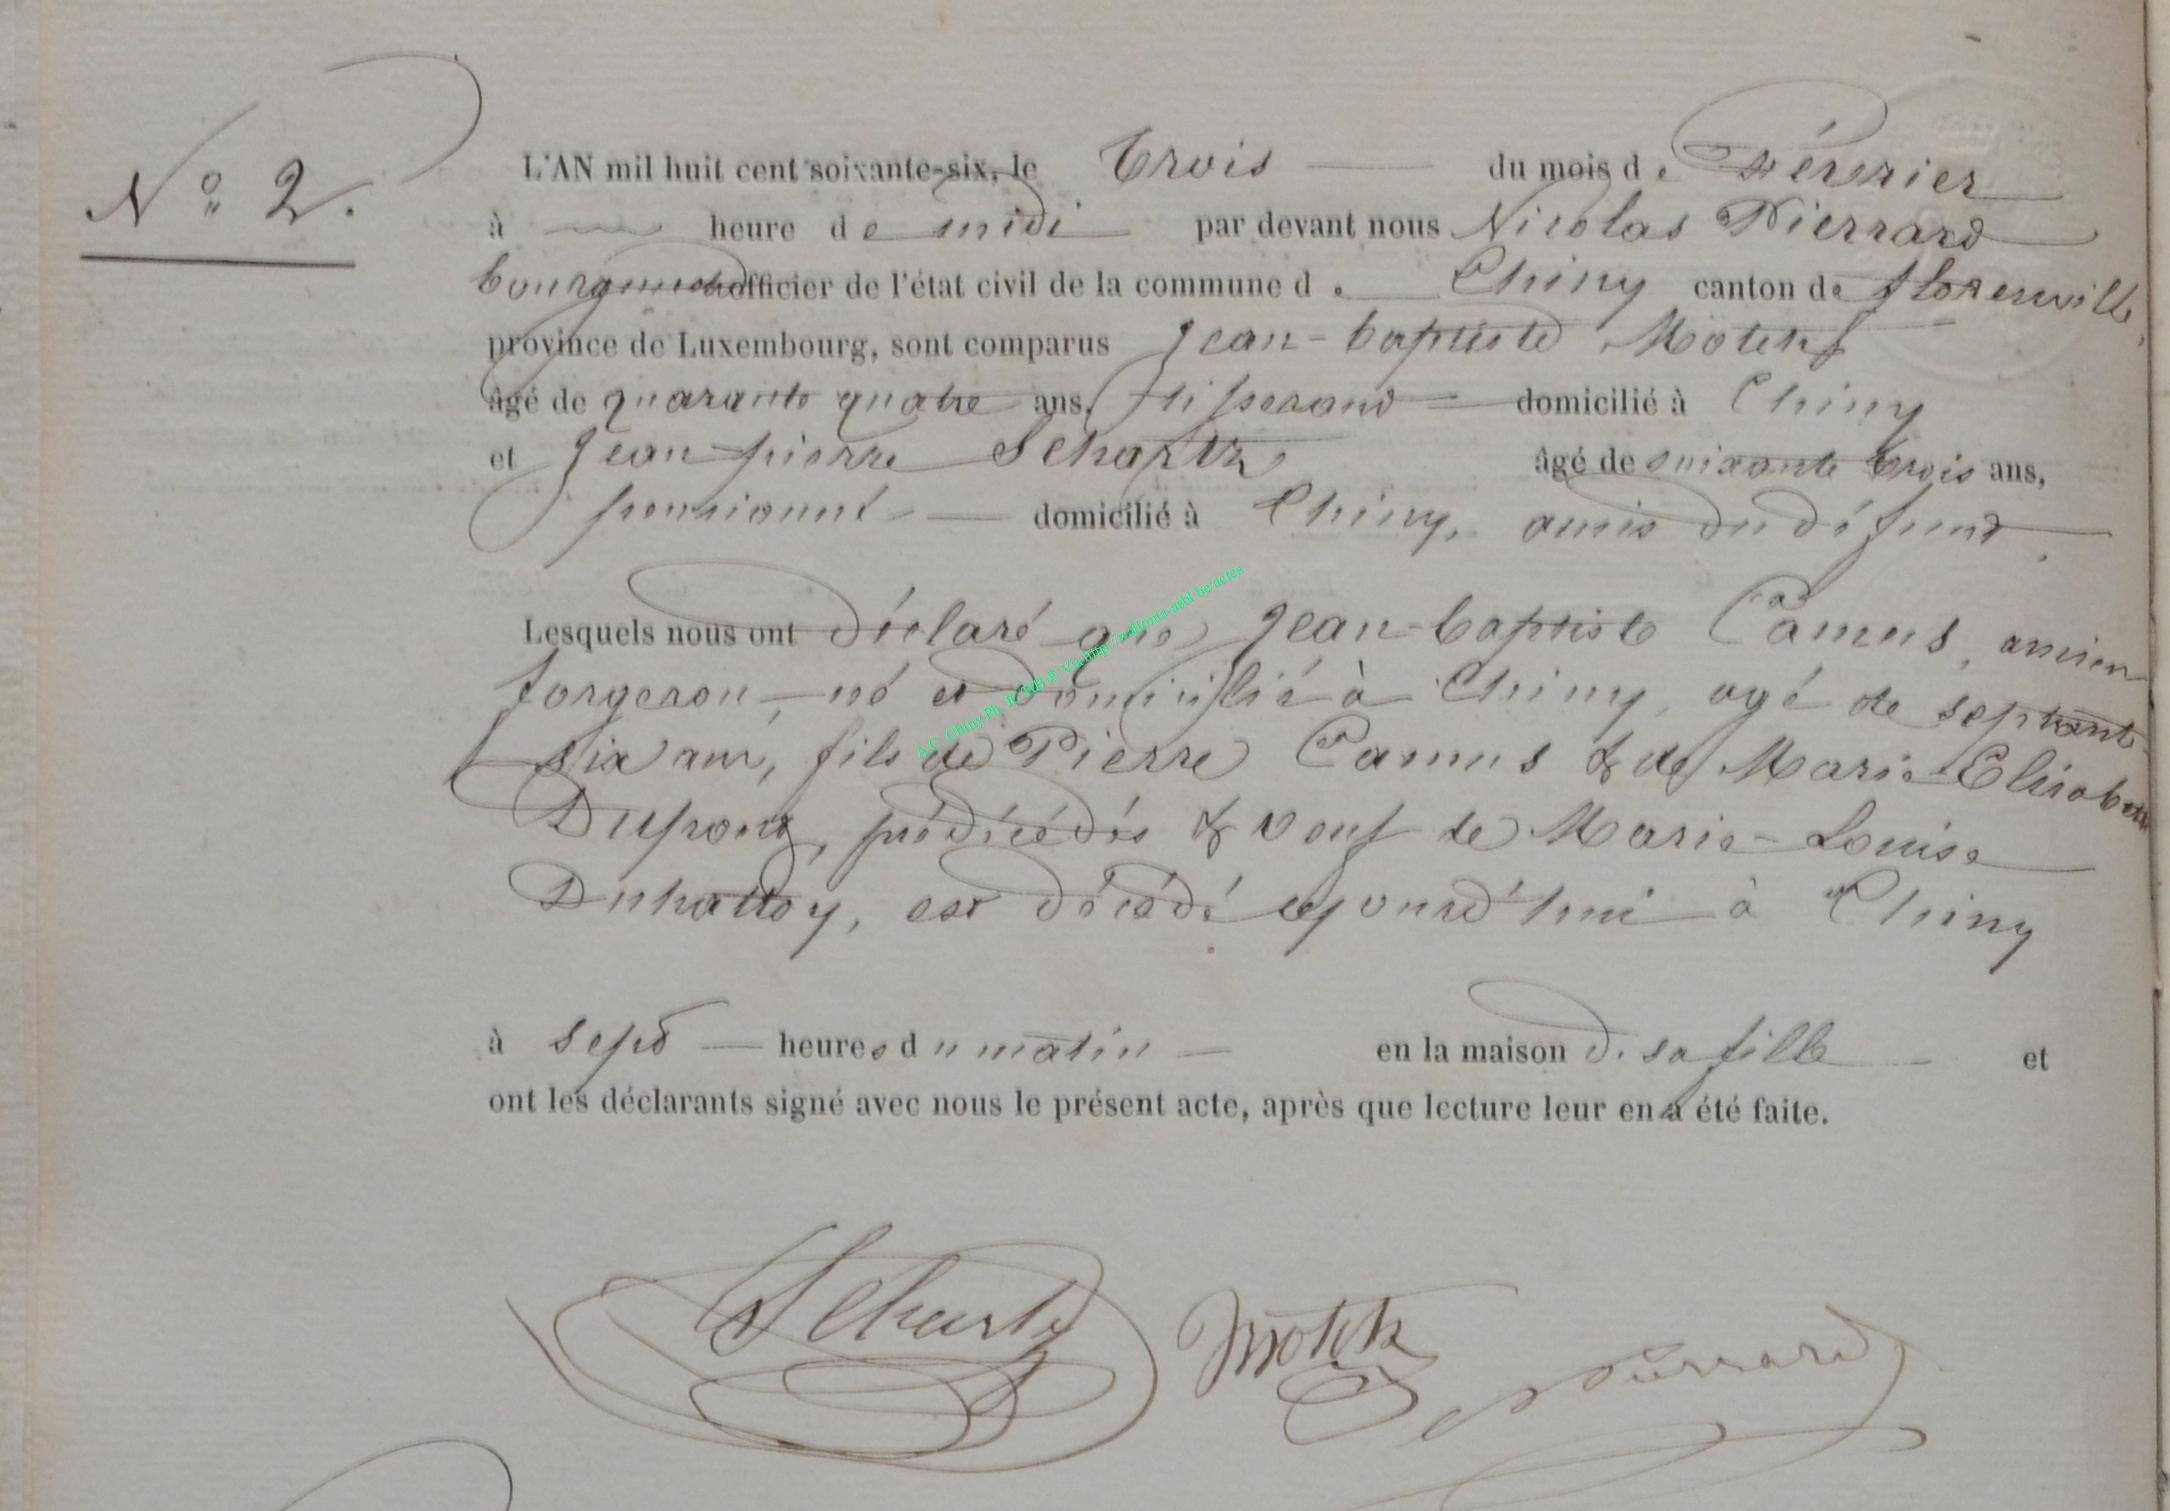 N° 2.
L'AN mil huit cent soixante-six, le trois du mois de février
à une heure de midi par devant nous Nicolas Pierrard
bourgmestre officier de l'état civil de la commune de Chiny canton de florenville,
province de Luxembourg, sont comparus Jean-baptiste
âgé de quarante quatre ans, tisserand domicilié à Chiny
et Jean-pierre Schartz âgé de soixante trois ans,
pensionné domicilié à Chiny, amis du défunt.
Lesquels nous ont déclaré que Jean-baptiste Camus, ancien
forgeron, né et domicilié à Chiny, agé de septante
six ans, fils de Pierre Camus & de Marie-Elisabeth
Dupong, prédécédés & veuf de Marie-Louise
Duhattoy, est décédé aujourd'hui à Chiny
à sept heures du matin en la maison de sa fille et
ont les déclarants signé avec nous le présent acte, après que lecture leur en a été faite.
Schartz Pierrard
A.C. Chiny Ph. via http://wallonia-asbl.be/actes